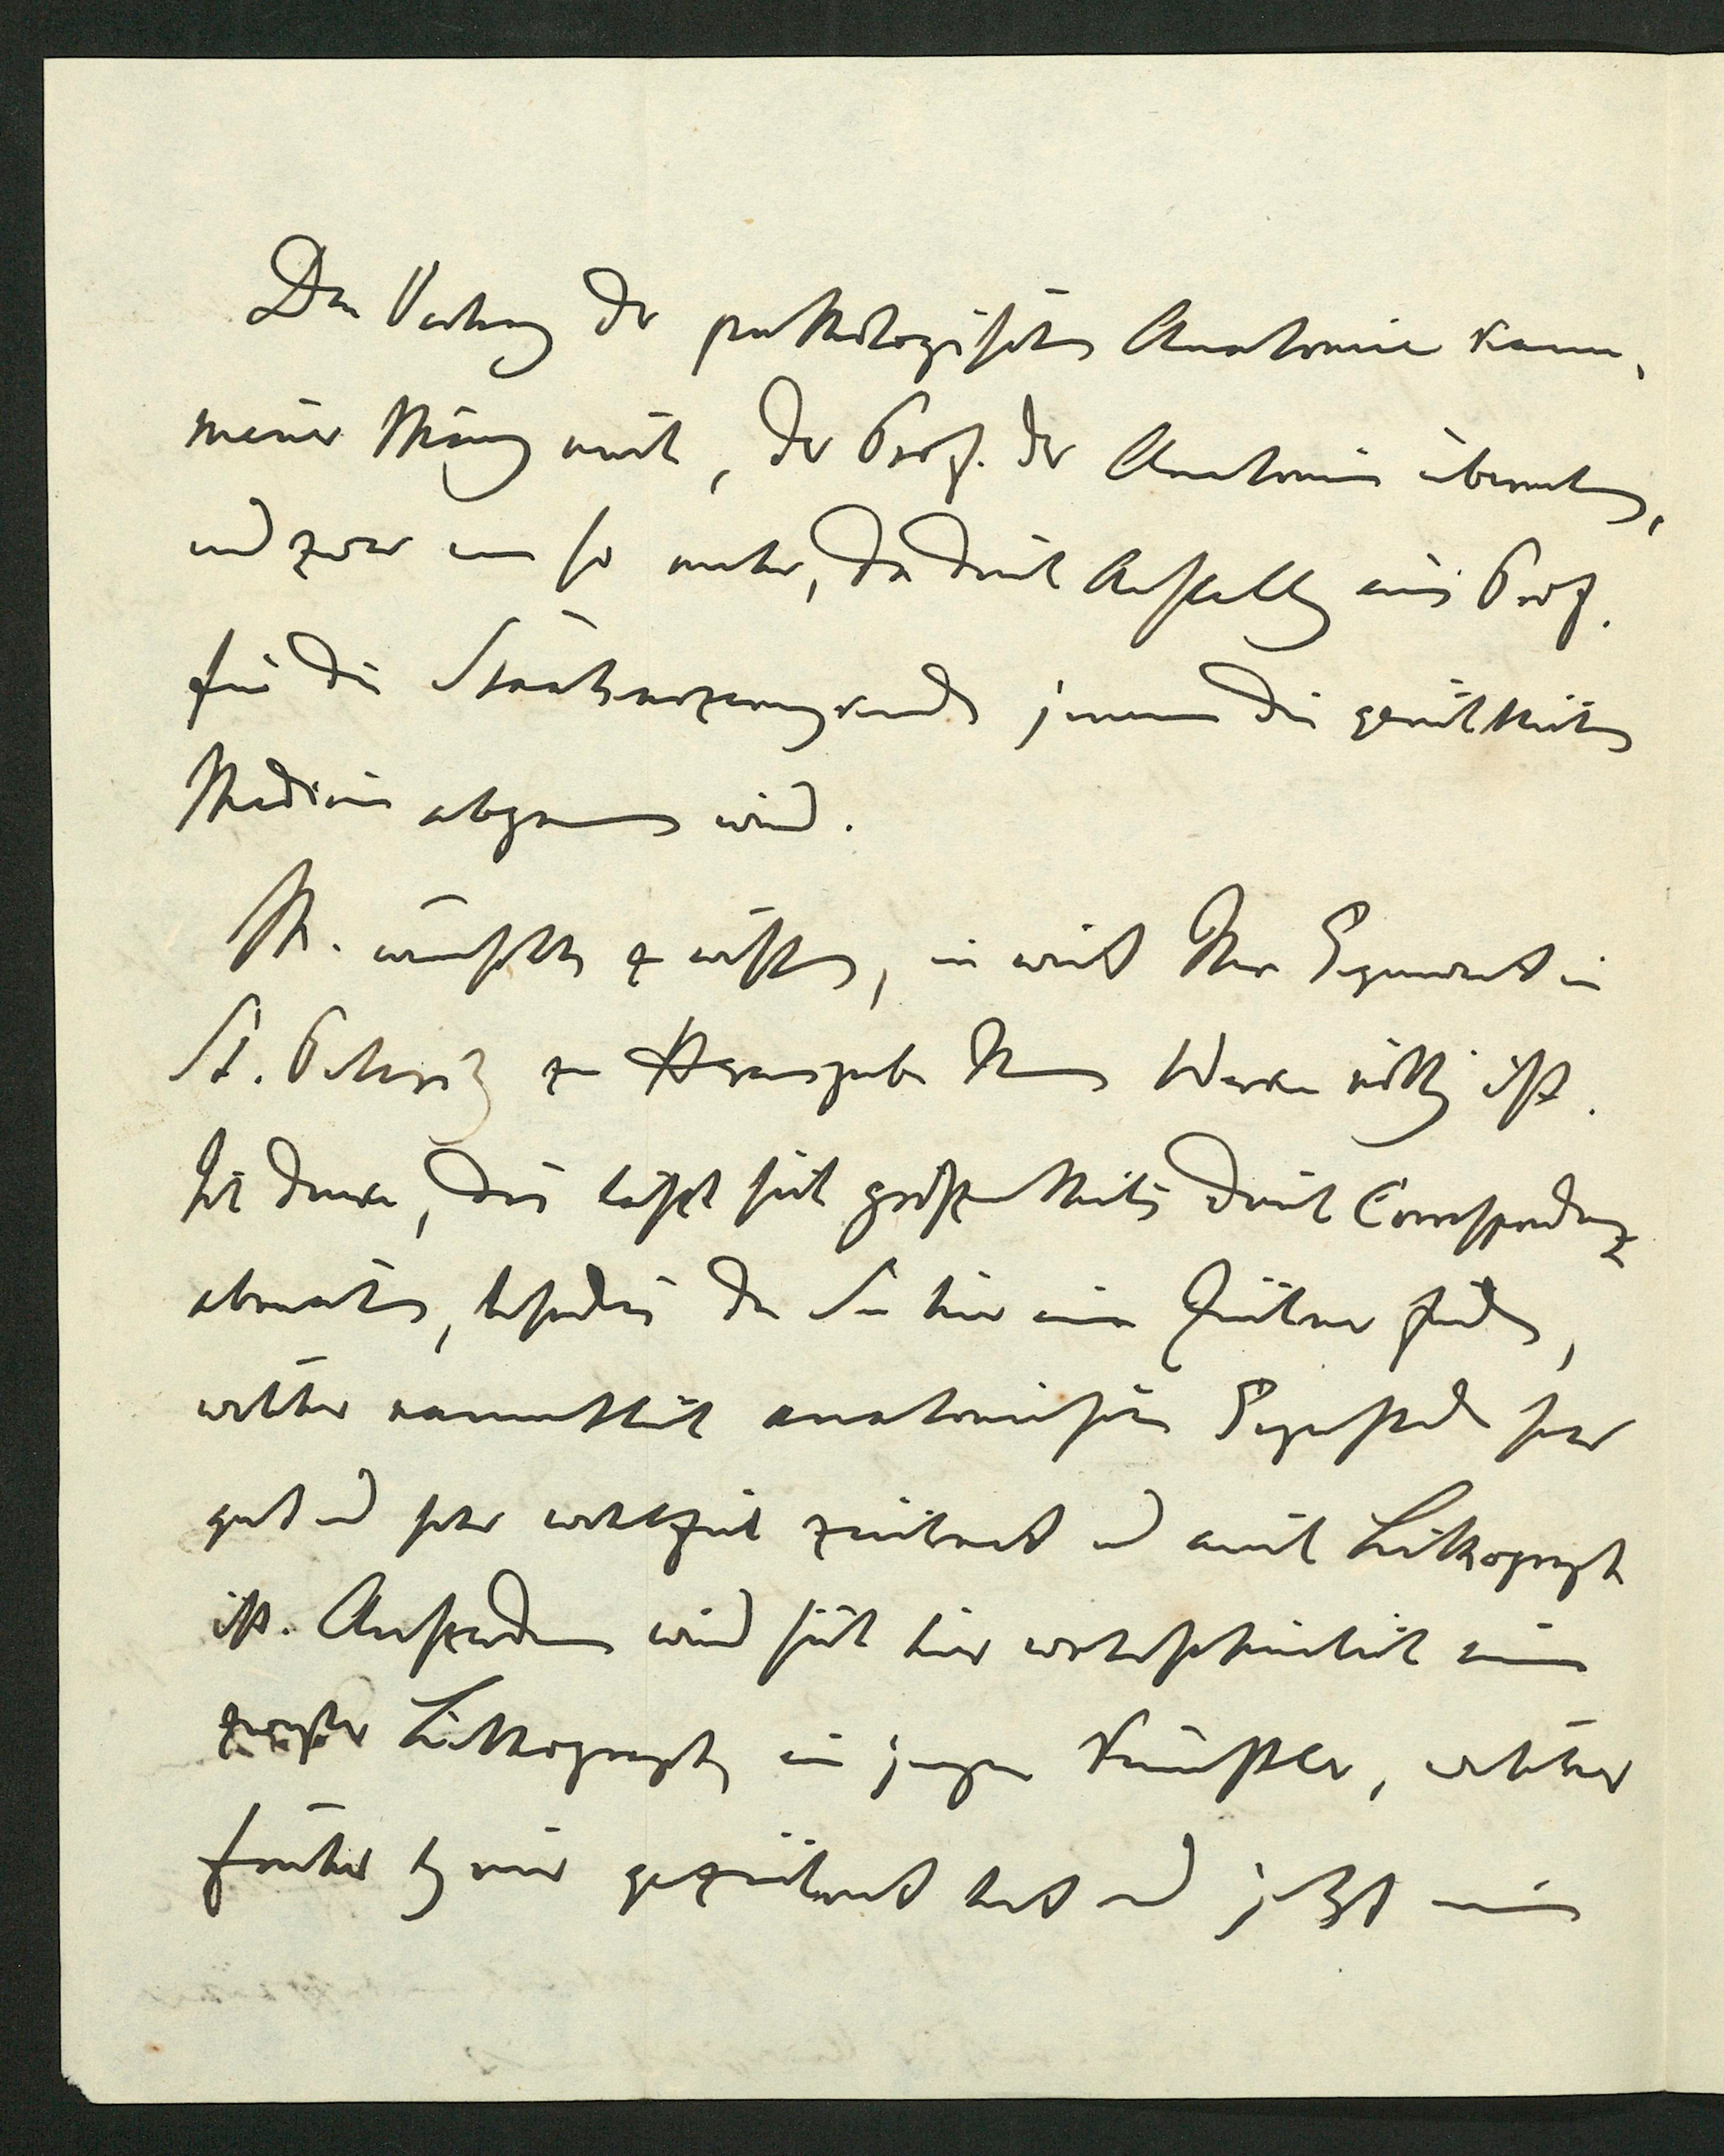 Den Vortrag der pathologischen Anatomie kann,
meiner Meinung nach, der Prof. der Anatomie übernehmen,
und zwar um so mehr, da durch Anstellung eines Prof.
für die Staatsarzneykunde jenem die gerichtliche
Medicin abgenommen wird.
M. wünschte zu wissen, in weit Ihre Gegenwart in
St. Petersb zur Herausgabe Ihres Werkes nöthig ist.
Ich denke, dies läßt sich größentheils durch Correspondenz
abmachen, besonders da Sie hier einen Zeichner finden,
welcher namentlich anatomische Gegenstände sehr
gut und sehr wohlfeil zeichnet und auch Lithograph
ist. Ausserdem wird sich hier wahrscheinlich ein
zweyter Lithograph, ein junger Künstler, welcher
früher bey mir gezeichnet hat und jetzt